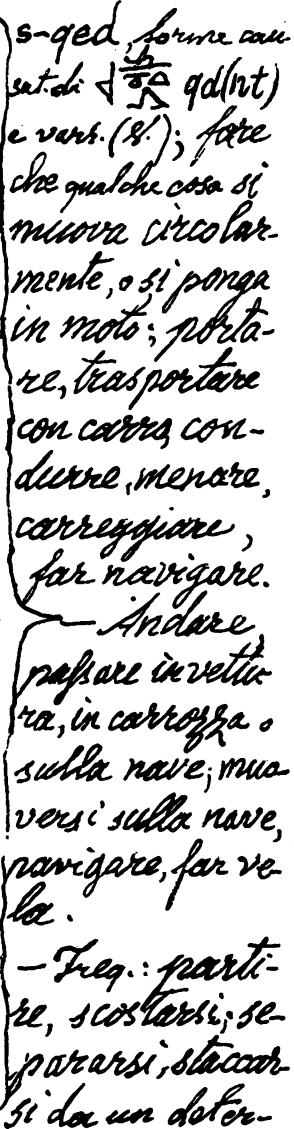 s-qed, forme cau-
sat. di qd(nt)
e vars. (V.); fare
che qualche cosa si
muova circolar-
mente, o si ponga
in moto; porta-
re, trasportare
con carro, con-
durre, menare,
carreggiare,
far navigare.
— Andare,
passare in vettu-
ra, in carrozza o
sulla nave; muo-
versi sulla nave,
navigare, far ve-
la.
— Freq.: parti-
re, scostarsi; se-
pararsi, staccar-
si da un deter-